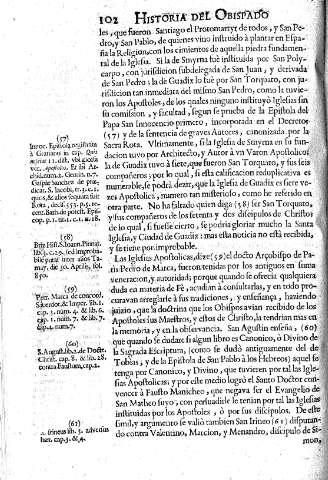 102 HISTORIA DEL OBISPADO
les, que fueron Santiago el Protomartyr de todos, y San Pe-
dro, y San Pablo, de quienes vino instituìdo à plantar en Espa-
ña la Religion, con los cimientos de aquella piedra fundamen-
tal de la Iglesia. Si la de Smyrna fuè instituìda por San Poly-
carpo, con jurisdicion subdelegada de San Juan, y derivada
de San Pedro: la de Guadix lo fuè por San Torquato, con ju-
risdicion tan inmediata del mismo San Pedro, como la tuvie-
ron los Apostoles, de los quales ninguno instituyò Iglesias sin
su comission, y facultad, segun se prueba de la Epistola del
Papa San Innocencio primero, incorporada en el Decretor
(57) y de la sentencia de graves Autores, canonizada por la
Sacra Rota. Ultimamente, si la Iglesia de Smyrna en su fun-
dacion tuvo por Architecto, y Autor à un Varon Apostolico,
la de Guadix tuvo à siete, que fueron San Torquato, y sus seis
compañeros; por lo qual, si esta calificacion reduplicativa es
numerable, se podrà dezir, que la Iglesia de Guadix es siete ve-
zes Apostolica; numero tan misterioso, como he referido en
otra parte. No ha faltado quien diga (58) ser San Torquato,
y sus compañeros de los setenta y dos discipulos de Christo
de lo qual, si fuesse cierto, se podria gloriar mucho la Santa
Iglesia, y Ciudad de Guadix: mas esta noticia no està recibida,
y se tiene por improbable.
Las Iglesias Apostolicas, dize (59) el doctor Arçobispo de Pa-
ris Pedro de Marca, fueron tenidas por los antiguos en suma
veneracion, y autoridad: porque quando se ofrecia qualquiera
duda en materia de Fè, acudian à consultarlas, y en todo pro-
curavan arreglarse à sus tradiciones, y enseñança, haziendo
juizio, que la doctrina que los Obispos avian recibido de los
Apostoles sus Maestros, y estos de Christo, la tendrian mas en
la memoria, y en la observancia. San Agustin enseña, (60)
que quando se dudare si algun libro es Canonico, ò Divino de
la Sagrada Escriptura, (como se dudò antiguamente del de
Tobias, y de la Epistola de San Pablo à los Hebreos) aquel se
tenga por Canonico, y Divino, que tuvieren por tal las Igle-
sias Apostolicas; y por este medio logrò el Santo Doctor con-
vencer à Fausto Manicheo, que negava ser el Evangelio de
San Matheo suyo, con persuadirle le tenian por tal las Iglesias
instituìdas por los Apostoles, ò por sus discipulos. De este
simil, y argumento se valiò tambien San Irineo (61) disputan-
do contra Valentino, Marcion, y Menandro, discipulo de Si-
mon,
(57)
Innoc. Epistola registrata
(58)
(59)
Petr. Marca de concord.
cap. 3. num. 4. & lib. 6.
cap. 4. num. 7.
(60)
S. Augustin. lib. 2. de Doctr.
Christ. cap. 8. & lib. 11.
contra Faustum, cap. 2.
(61)
S. Irineus lib. 3. adversus
hær. cap. 3. & 4.